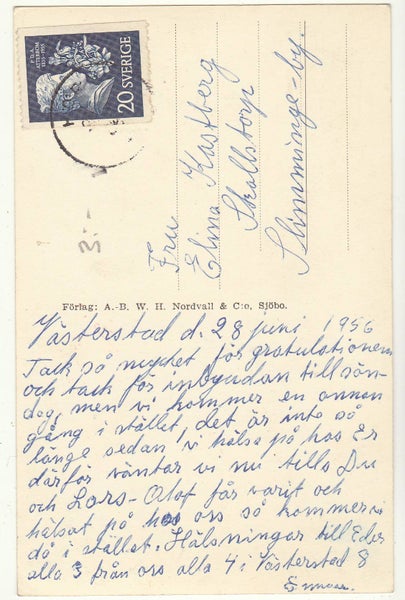 P.D.A. ATTERBOM
1855-1955
20 SVERIGE
3:-
Fru
Elina Kastberg
Skallstorp
Slimminge-by.
Förlag: A.-B. W. H. Nordvall & C:o, Sjöbo.
Västerstad d. 28 juni 1956
Tack så mycket för gratulationen
och tack för inbjudan till sön-
dag, men vi kommer en annan
gång i stället, det är inte så
länge sedan vi hälsa på hos Er
därför väntar vi nu tills Du
och Lars-Olof får varit och
hälsat på hos oss så kommer vi
då i stället. Hälsningar till Eder
alla 3 från oss alla 4 i Västerstad 8